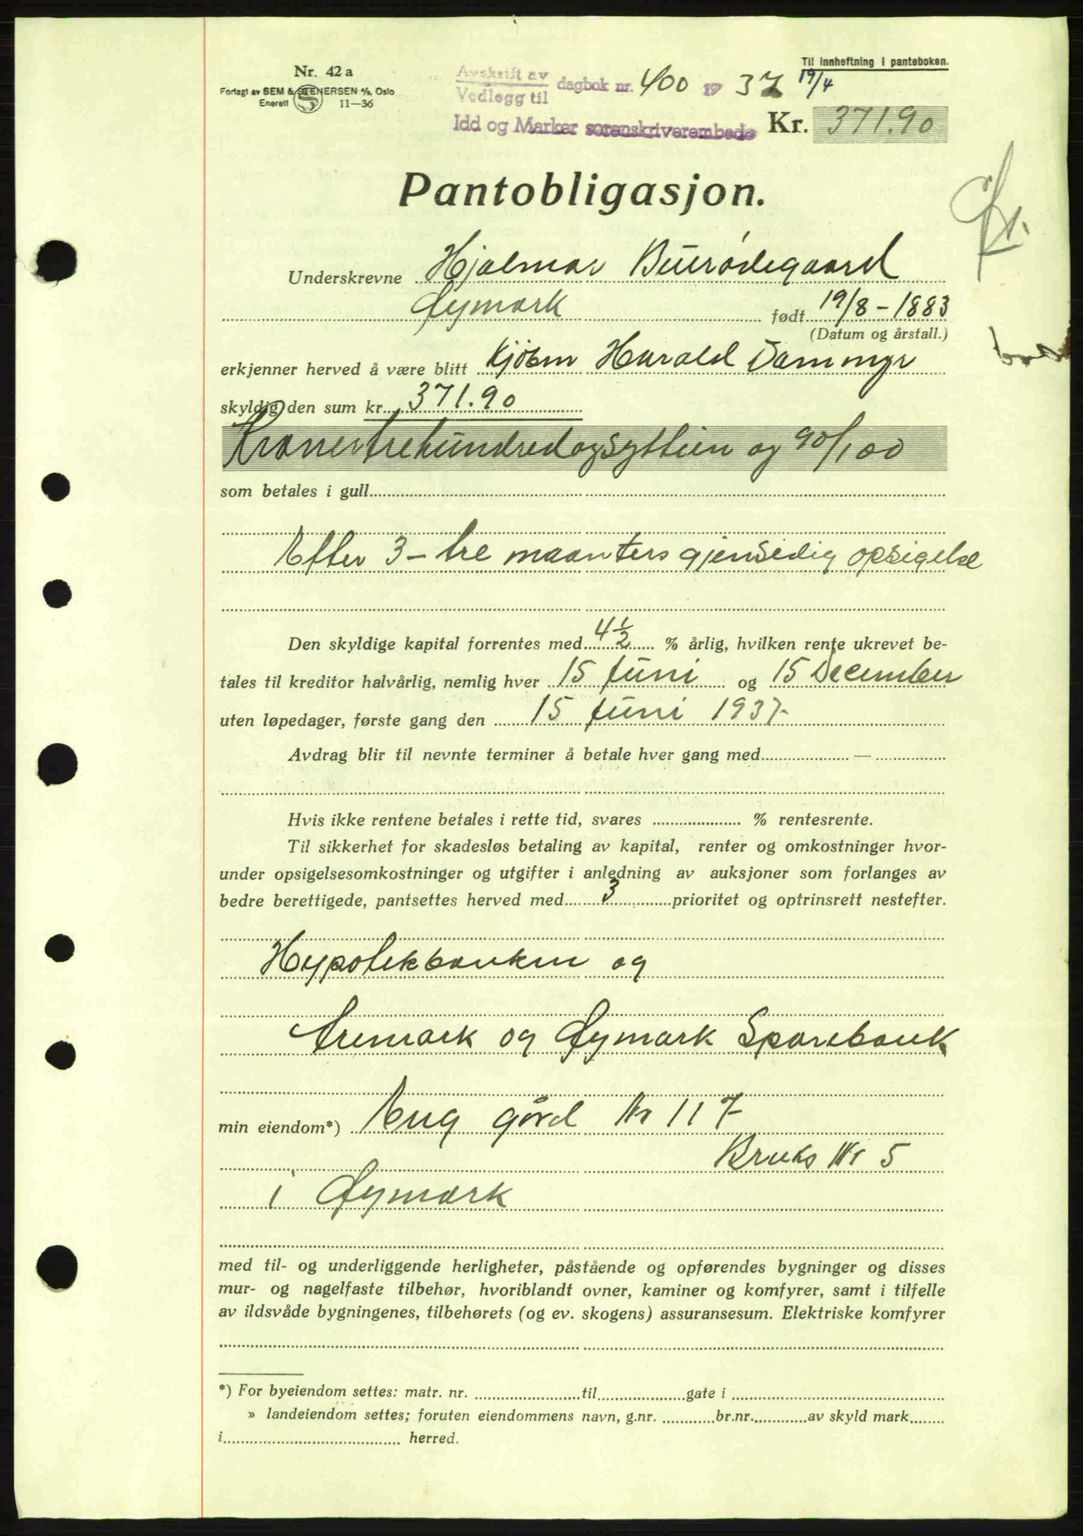 Til innheftning i panteboken.
Nr. 42 a
Forlagt av SEM & STENERSEN A/S, Oslo
Enerett 11-36
Avskrift av
Vedlegg til dagbok nr. 400 19 37 19/4
Idd og Marker sorenskriverembede Kr. 371.90
Pantobligasjon.
Underskrevne Hjalmar Buerødegaard
Øymark født 19/8 - 1883
(Datum og årstall.)
erkjenner herved å være blitt Kjøbm Harald Dammyr
skyldig den sum kr. 371.90
Kroner trehundredogsyttien og 90/100
som betales i gull
Efter 3 - tre maanters gjensidig opsigelse
Den skyldige kapital forrentes med 4 1/2 % årlig, hvilken rente ukrevet be-
tales til kreditor halvårlig, nemlig hver 15 Juni og 15 December
uten løpedager, første gang den 15 Juni 1937-
Avdrag blir til nevnte terminer å betale hver gang med —
Hvis ikke rentene betales i rette tid, svares % rentesrente.
Til sikkerhet for skadesløs betaling av kapital, renter og omkostninger hvor-
under opsigelsesomkostninger og utgifter i anledning av auksjoner som forlanges av
bedre berettigede, pantsettes herved med 3 prioritet og optrinsrett nestefter.
Hypotekbanken og
Aremark og Øymark Sparebank
min eiendom*) Eng gård Nr 117
Bruks Nr 5
i Øymark
med til- og underliggende herligheter, påstående og opførendes bygninger og disses
mur- og nagelfaste tilbehør, hvoriblandt ovner, kaminer og komfyrer, samt i tilfelle
av ildsvåde bygningenes, tilbehørets (og ev. skogens) assuransesum. Elektriske komfyrer
*) For byeiendom settes: matr. nr. til gate i
» landeiendom settes; foruten eiendommens navn, g.nr. br.nr. av skyld mark
i herred.